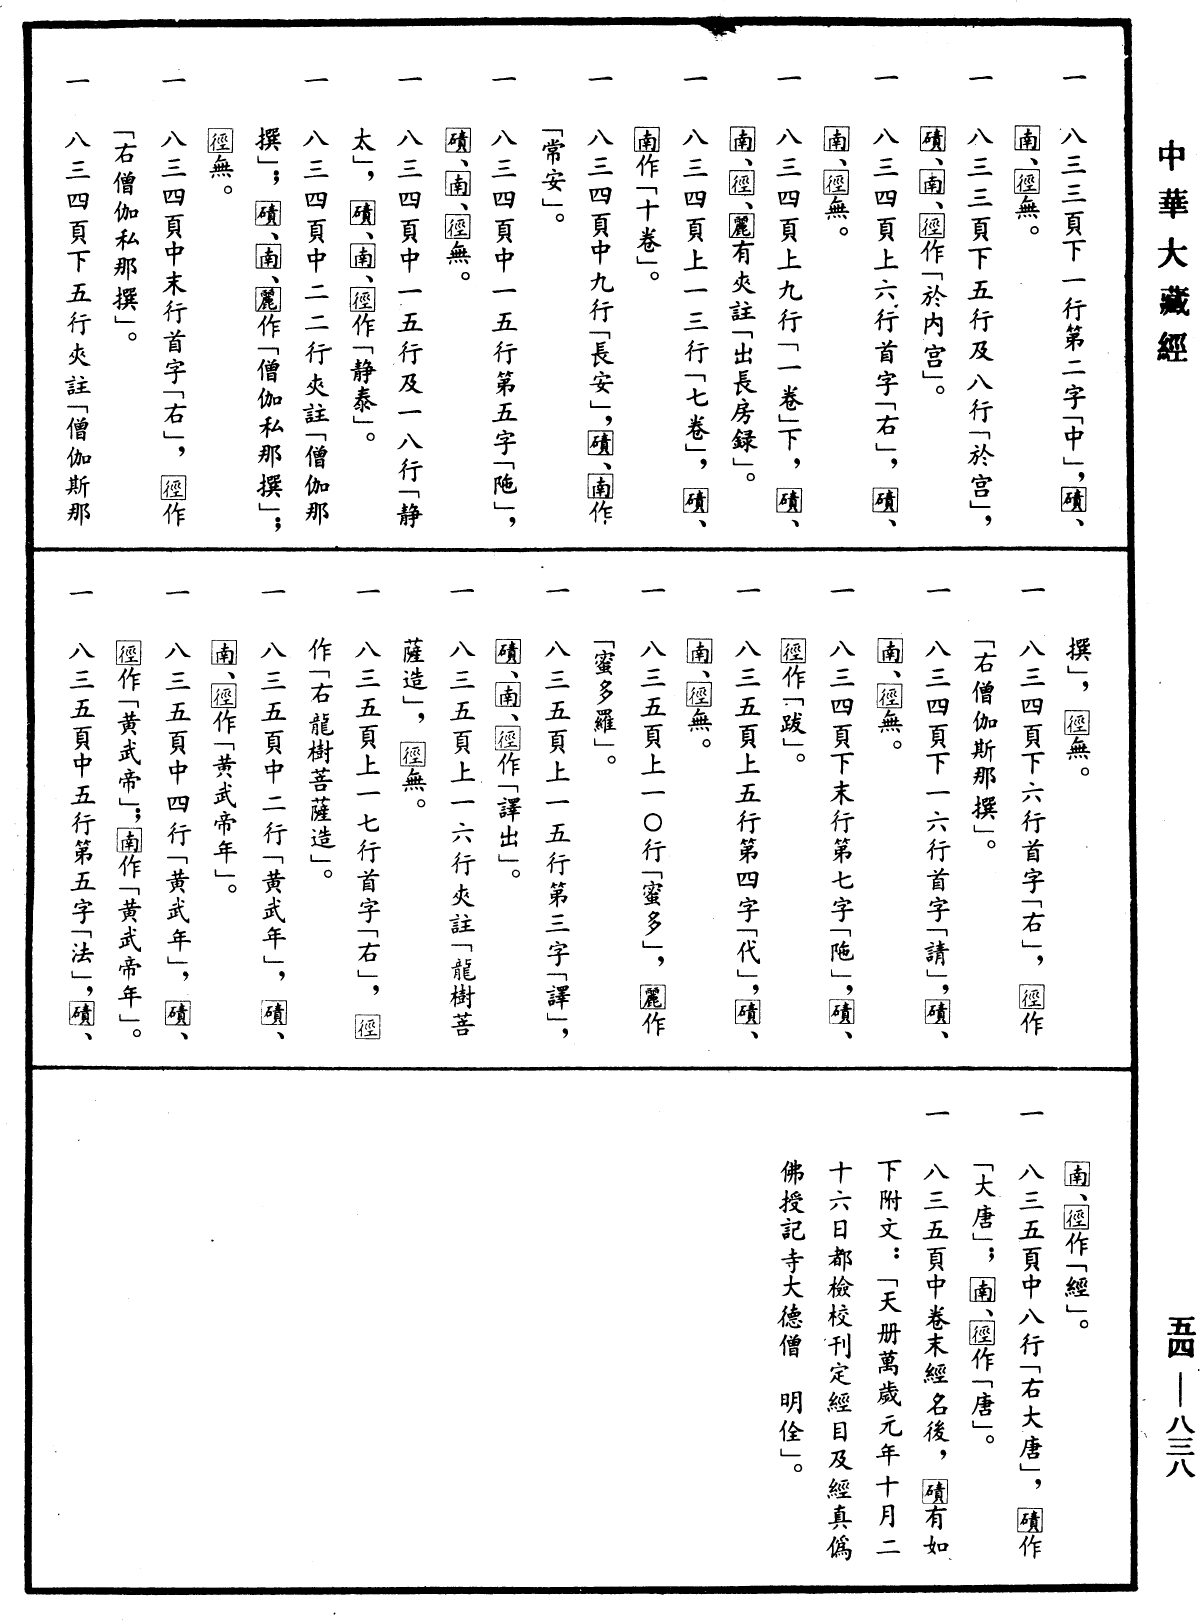 中華大藏經
五四—八三八
一　八三三頁下一行第二字「中」，磧、
南、徑無。
一　八三三頁下五行及八行「於宮」，
磧、南、徑作「於内宮」。
一　八三四頁上六行首字「右」，磧、
南、徑無。
一　八三四頁上九行「一卷」下，磧、
南、徑、麗有夾註「出長房録」。
一　八三四頁上一三行「七卷」，磧、
南作「十卷」。
一　八三四頁中九行「長安」，磧、南作
「常安」。
一　八三四頁中一五行第五字「陁」，
磧、南、徑無。
一　八三四頁中一五行及一八行「静
太」，磧、南、徑作「静泰」。
一　八三四頁中二二行夾註「僧伽那
撰」；磧、南、麗作「僧伽私那撰」；
徑無。
一　八三四頁中末行首字「右」，徑作
「右僧伽私那撰」。
一　八三四頁下五行夾註「僧伽斯那
撰」，徑無。
一　八三四頁下六行首字「右」，徑作
「右僧伽斯那撰」。
一　八三四頁下一六行首字「請」，磧、
南、徑無。
一　八三四頁下末行第七字「陁」，磧、
徑作「跋」。
一　八三五頁上五行第四字「代」，磧、
南、徑無。
一　八三五頁上一〇行「蜜多」，麗作
「蜜多羅」。
一　八三五頁上一五行第三字「譯」，
磧、南、徑作「譯出」。
一　八三五頁上一六行夾註「龍樹菩
薩造」，徑無。
一　八三五頁上一七行首字「右」，徑
作「右龍樹菩薩造」。
一　八三五頁中二行「黄武年」，磧、
南、徑作「黄武帝年」。
一　八三五頁中四行「黄武年」，磧、
徑作「黄武帝」；南作「黄武帝年」。
一　八三五頁中五行第五字「法」，磧、
南、徑作「經」。
一　八三五頁中八行「右大唐」，磧作
「大唐」；南、徑作「唐」。
一　八三五頁中卷末經名後，磧有如
下附文：「天册萬歲元年十月二
十六日都檢校刊定經目及經真僞
佛授記寺大德僧　明佺」。